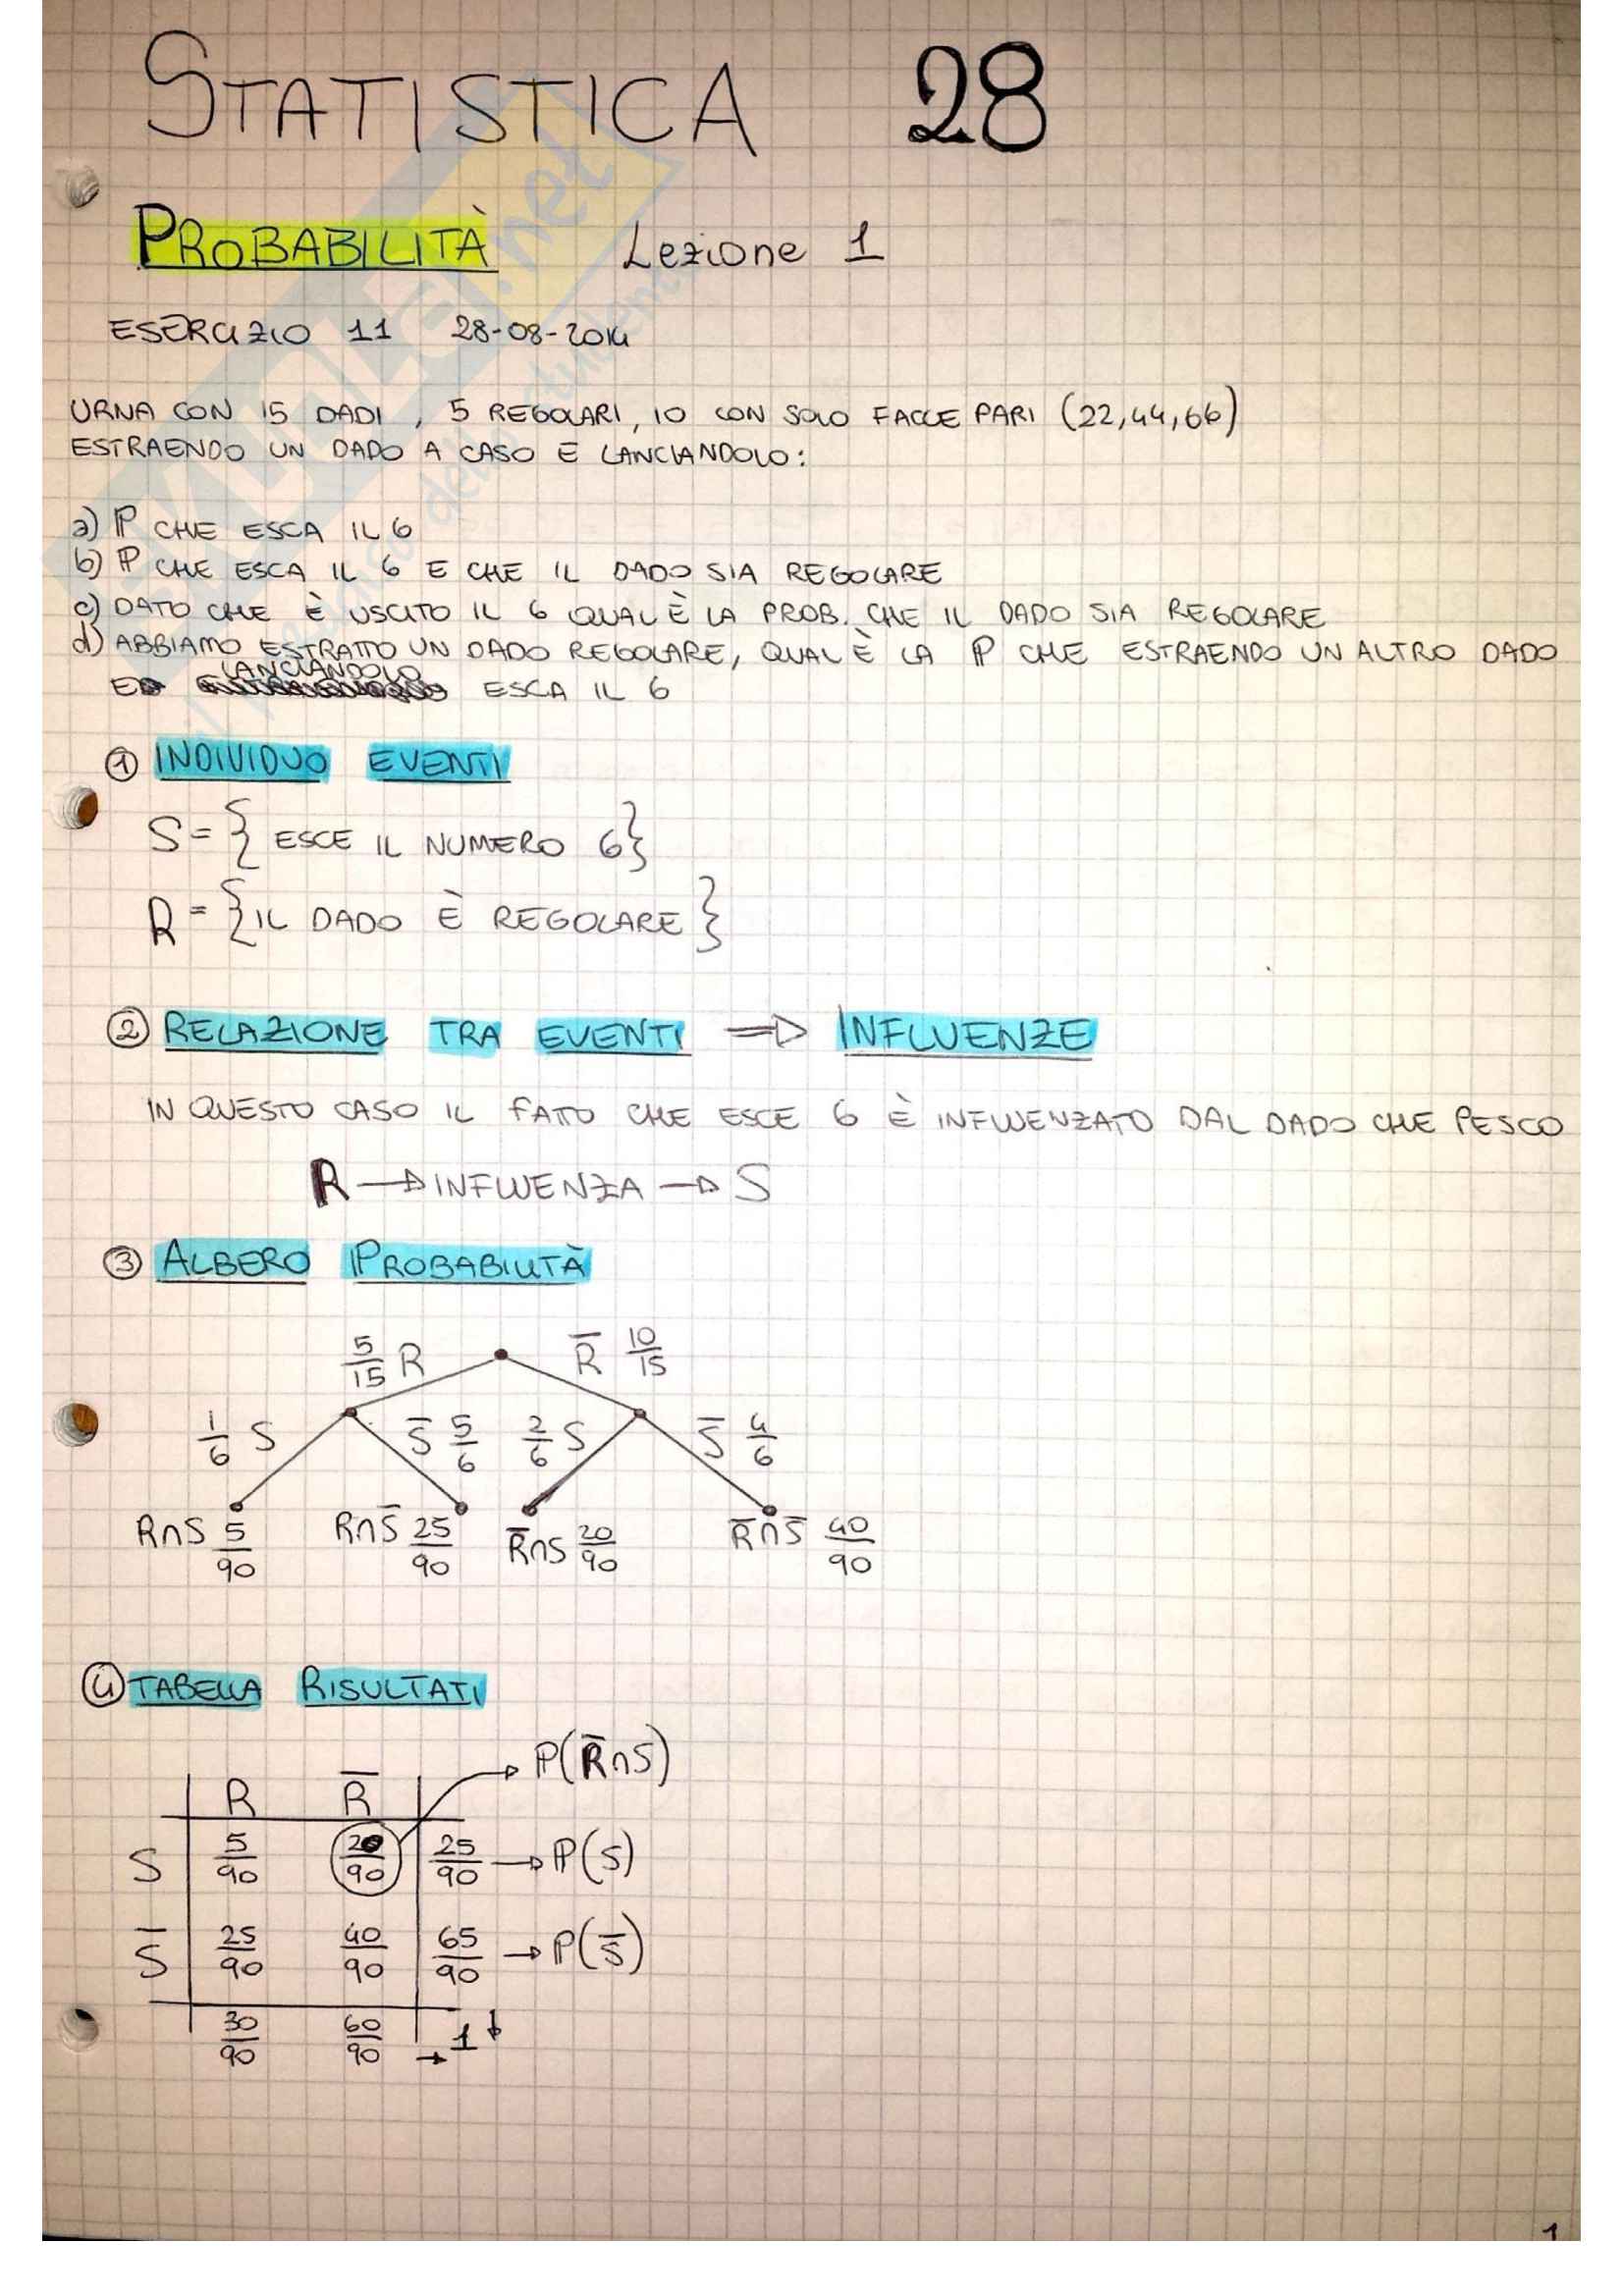 STATISTICA 28
PROBABILITÀ Lezione 1
ESERCIZIO 11 28-08-2014
URNA CON 15 DADI, 5 REGOLARI, 10 CON SOLO FACCE PARI (22,44,66)
ESTRAENDO UN DADO A CASO E LANCIANDOLO:
a) ℙ CHE ESCA IL 6
b) ℙ CHE ESCA IL 6 E CHE IL DADO SIA REGOLARE
c) DATO CHE È USCITO IL 6 QUAL È LA PROB. CHE IL DADO SIA REGOLARE
d) ABBIAMO ESTRATTO UN DADO REGOLARE, QUAL È LA ℙ CHE ESTRAENDO UN ALTRO DADO
E LANCIANDOLO ESCA IL 6
① INDIVIDUO EVENTI
S = { ESCE IL NUMERO 6}
R = {IL DADO È REGOLARE}
② RELAZIONE TRA EVENTI ⇒ INFLUENZE
IN QUESTO CASO IL FATTO CHE ESCE 6 È INFLUENZATO DAL DADO CHE PESCO
R → INFLUENZA → S
③ ALBERO PROBABILITÀ
5/15 R R̅ 10/15
1/6 S S̅ 5/6 2/6 S S̅ 4/6
R∩S 5/90 R∩S̅ 25/90 R̅∩S 20/90 R̅∩S̅ 40/90
④ TABELLA RISULTATI
→ ℙ(R̅∩S)
R R̅
S 5/90 20/90 25/90 → ℙ(S)
S̅ 25/90 40/90 65/90 → ℙ(S̅)
30/90 60/90 → 1 ↓
1